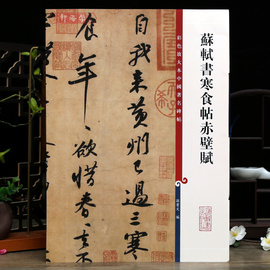 蘇軾書寒食帖赤壁賦
彩色放大本中國著名碑帖
自我来黄州已過三寒
食年〻欲惜春〻去不